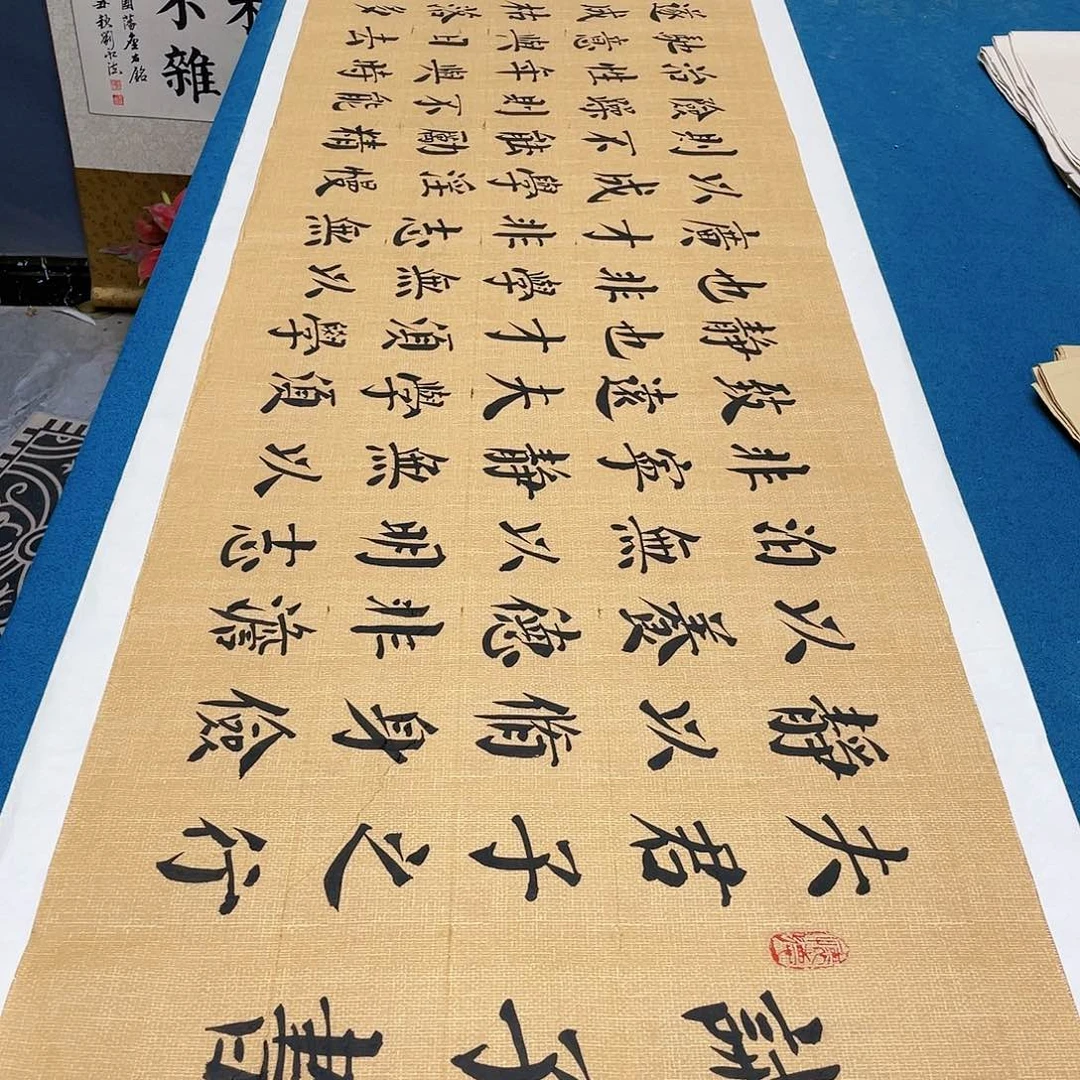 誡子書
夫君子之行
靜以脩身儉
以養德非澹
泊無以明志
非寧靜無以
致遠夫學須
靜也才須學
也非學無以
廣才非志無
以成學淫慢
則不能勵精
險躁則不能
治性年與時
馳意與日去
遂成枯落多
不雜
國藩座右銘